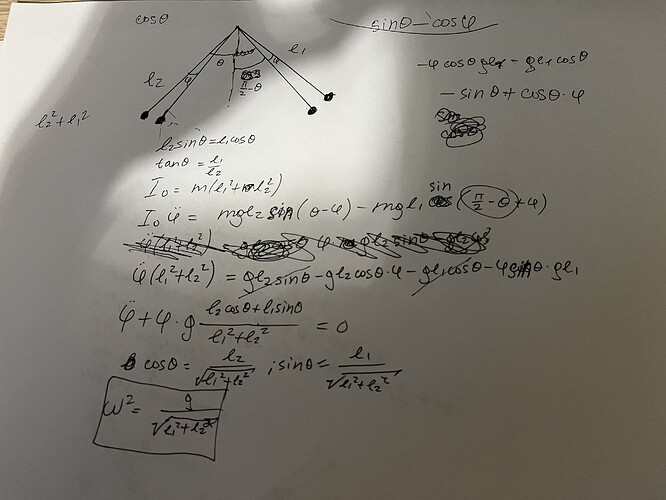 cosθ
sinθ - cosφ
l₂ θ φ φ l₁
π/2 - θ
-φ cosθ gl₂ - gl₁ cosθ
- sinθ + cosθ · φ
l₂² + l₁²
l₂ sinθ = l₁ cosθ
tanθ = l₁/l₂
I₀ = m(l₁² + l₂²)
I₀ φ̈ = mgl₂ sin(θ - φ) - mgl₁ sin(π/2 - θ + φ)
φ̈(l₁² + l₂²) = gl₂ sinθ - gl₂ cosθ · φ - gl₁ cosθ - φ sinθ · gl₁
φ̈ + φ · g (l₂ cosθ + l₁ sinθ)/(l₁² + l₂²) = 0
cosθ = l₂/√(l₁² + l₂²) ; sinθ = l₁/√(l₁² + l₂²)
ω² = g/√(l₁² + l₂²)